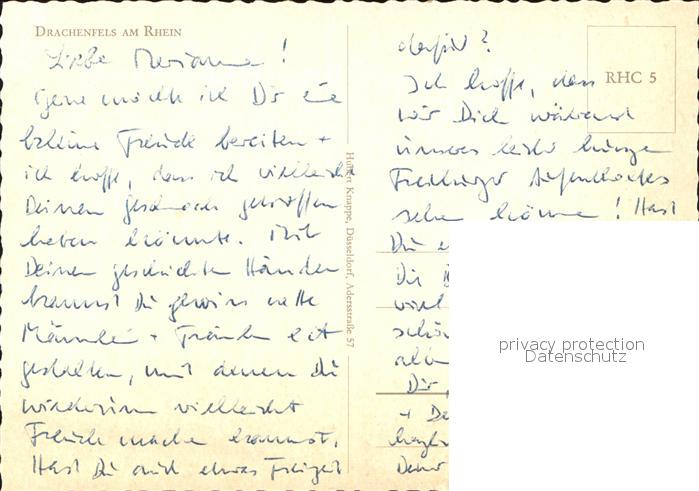 DRACHENFELS AM RHEIN
Liebe Marianne!
Gerne möchte ich Dir eine
kleine Freude bereiten +
ich hoffe, dass ich vielleicht
Deinen Geschmack getroffen
haben könnte. Mit
Deinen geschickten Händen
kannst Du gewiss nette
Männlein + Fräulein
gestalten, mit denen Du
wiederum vielleicht
Freude machen kannst.
Hast Du auch etwas Freizeit
Hubert Knappe, Düsseldorf, Adersstraße 57
dafür?
Ich hoffe, dass
wir Dich während
unseres leider kurzen
Freiburger Aufenthaltes
sehen können! Hast
Du
Dir
viel
schön
alle
Dir,
+ De
RHC 5
privacy protection
Datenschutz